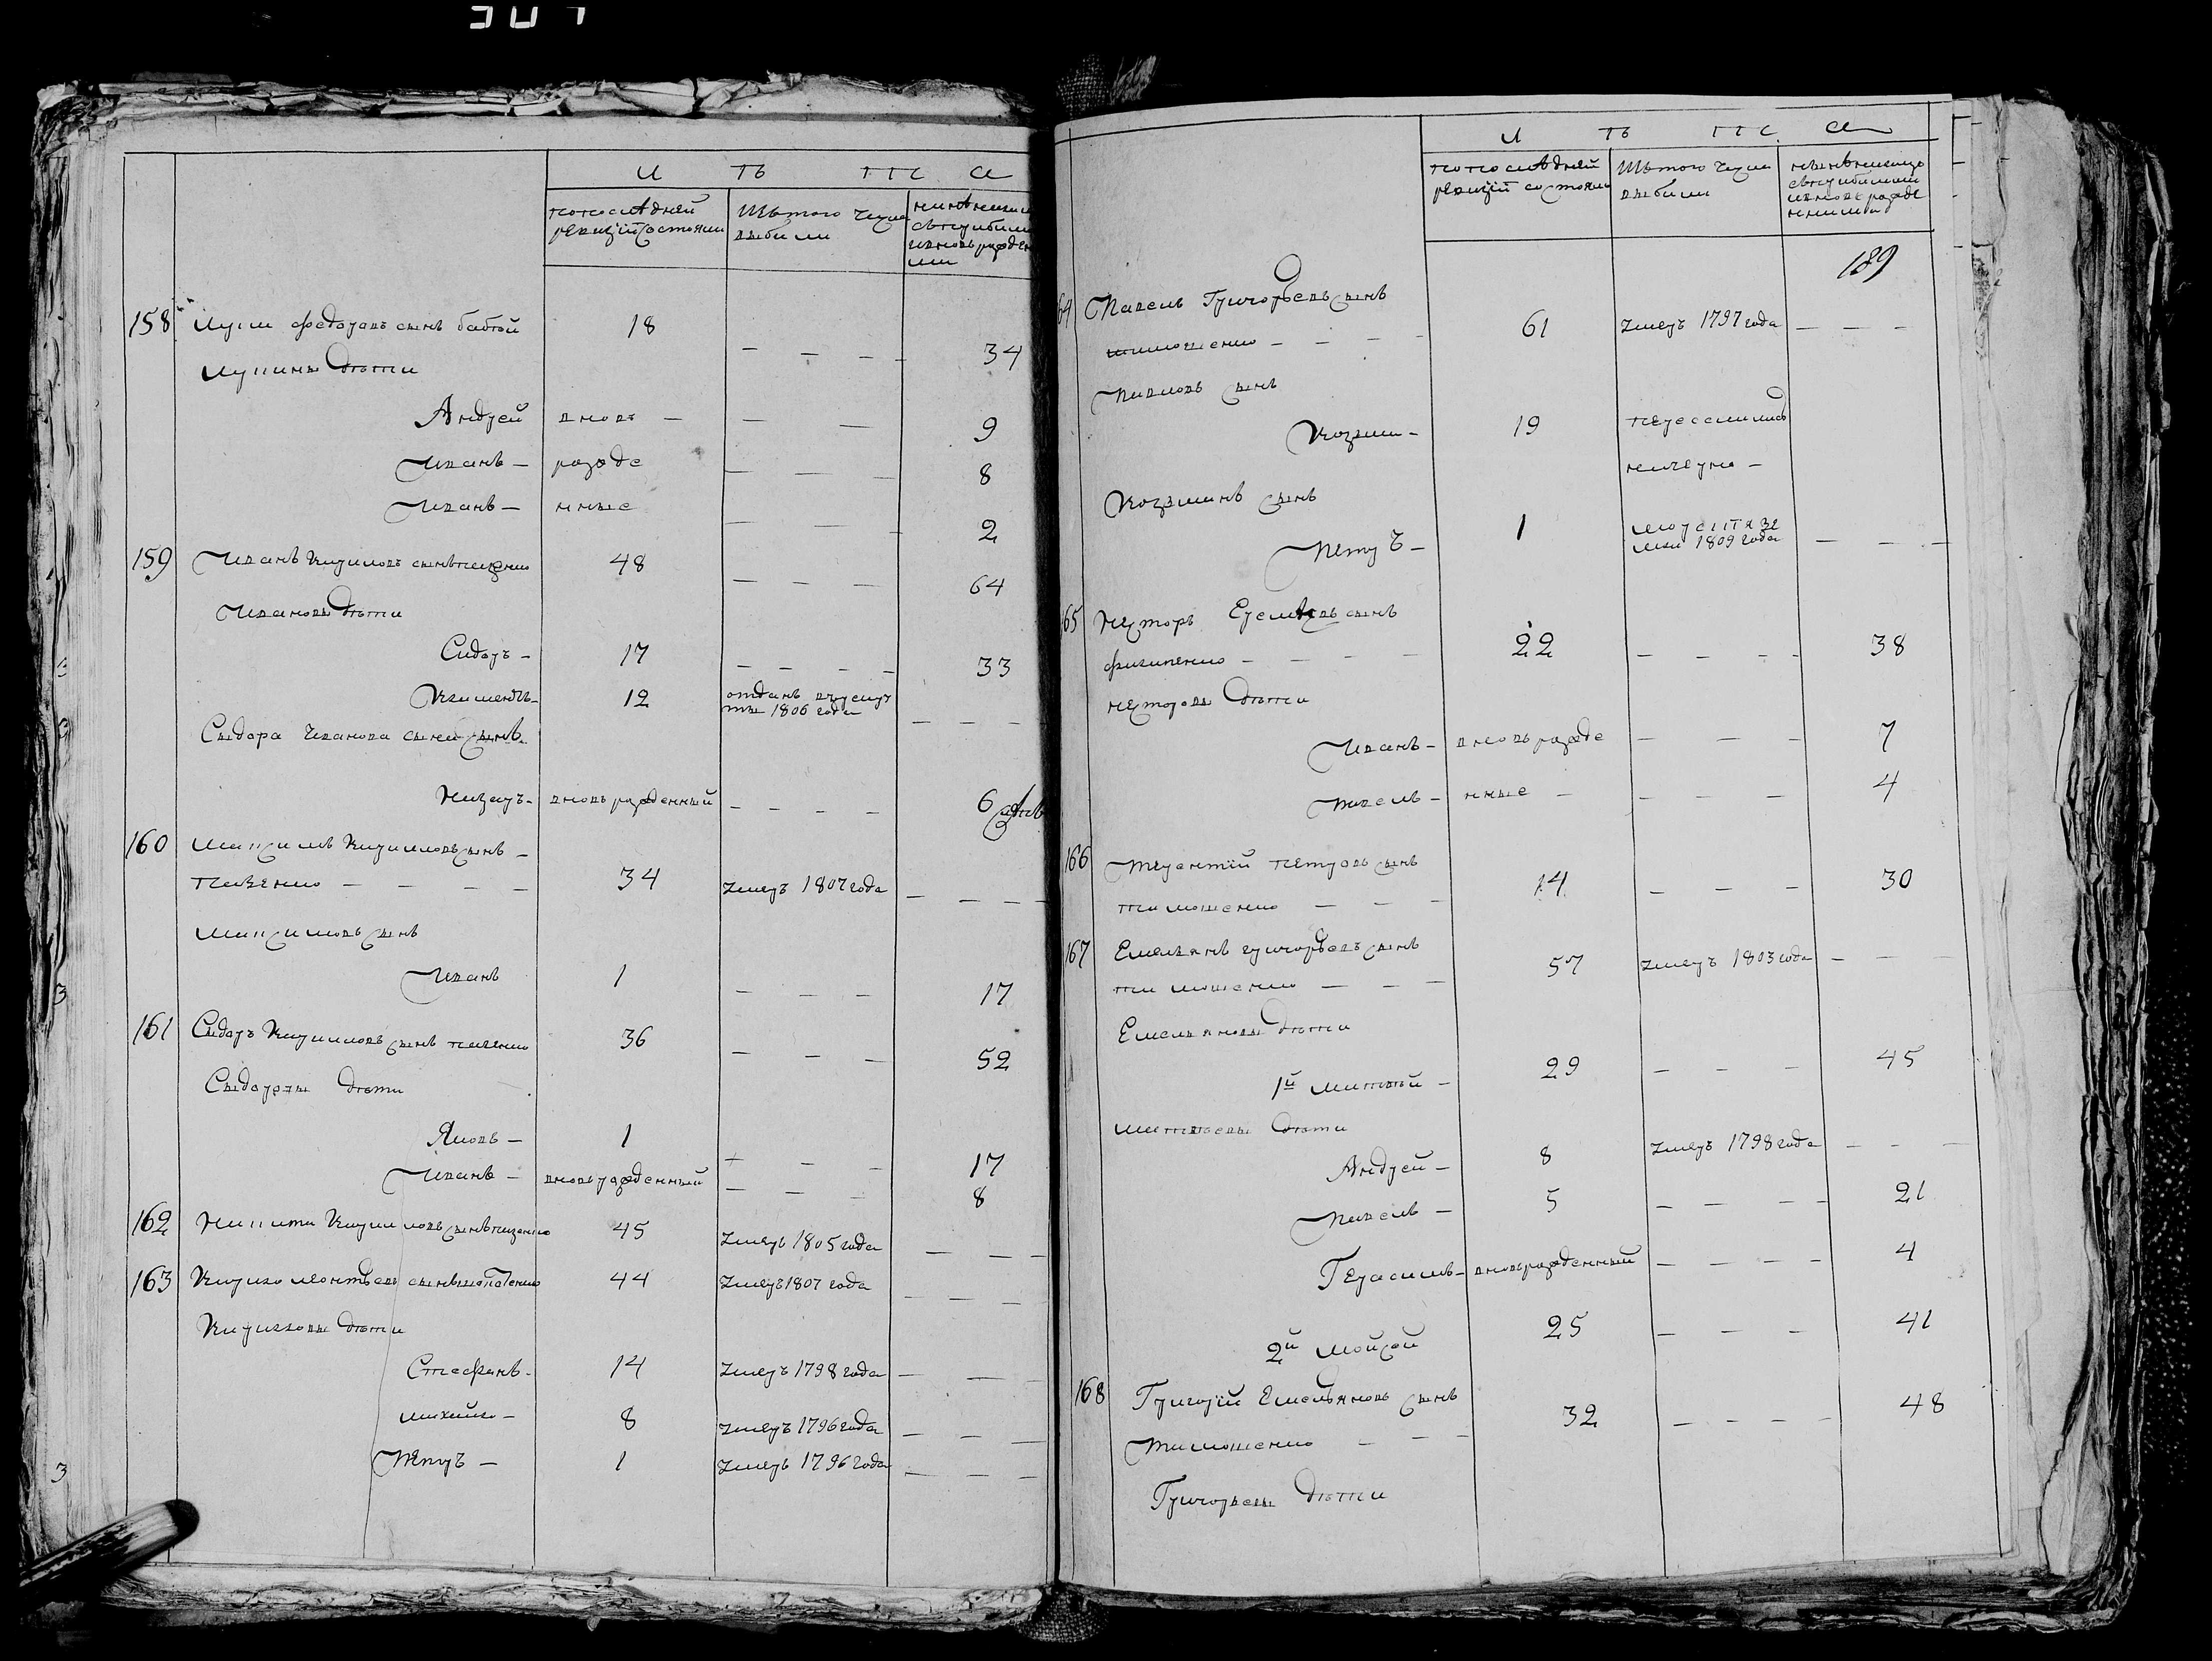 И ТЪ ГГС А
по последней ревизіи состояли
Изъ того числа выбыли
158 Лука Федоровъ сынъ бабкой 18 — — — 34
Лукины дети
Андрей вновь — — — 9
Иванъ — рожде — — 8
Иванъ — нные — — 2
159 Иванъ Кириловъ сынъ 48 — — — 64
Ивановы дети
Сидоръ — 17 — — — 33
Климентъ — 12 отданъ в рекруты 1806 года — — —
Сыдора Иванова сына сынъ
Назаръ — вновь рожденный — — — 6
160 Максимъ Кирилловъ сынъ —
— — — — 34 умеръ 1807 года — — —
Максимовъ сынъ
Иванъ 1 — — — 17
161 Сыдоръ Кирилловъ сынъ 36 — — — 52
Сыдоровы дети
Яковъ — 1 — — — 17
Иванъ — вновь рожденный — — — 8
162 Никита Кирилловъ сынъ 45 умеръ 1805 года — — —
163 Кирило Леонтьевъ сынъ 44 умеръ 1807 года — — —
Кириловы дети
Стефанъ — 14 умеръ 1798 года — — —
Михайло — 8 умеръ 1796 года — — —
Петръ — 1 умеръ 1796 года — — —
И ТЪ ГГС А
по последней ревизіи состояли
Изъ того числа выбыли
189
64 Павелъ Григорьевъ сынъ
тимошенко — — — 61 умеръ 1797 года — — —
Павловъ сынъ
Козьма — 19 переселились
Козьминъ сынъ
Петръ — 1 1809 года — — —
65 Несторъ сынъ
филипенко — — — — 22 — — — — 38
Несторовы дети
Иванъ — вновь рожде — — — 7
Павелъ — нные — — — — 4
166 Терентій Петровъ сынъ
тимошенко — — — 14 — — — 30
167 Емельянъ григорьевъ сынъ
тимошенко — — — 57 умеръ 1803 года — — —
Емельяновы дети
1й Матвей — 29 — — — 45
Матвеевы дети
Андрей — 8 умеръ 1798 года — — —
Павелъ — 5 — — — — 21
Герасимъ — вновь рожденный — — — — 4
2й Мойсей 25 — — — 41
168 Григорій Емельяновъ сынъ
Тимошенко — — — 32 — — — — 48
Григорьевы дети